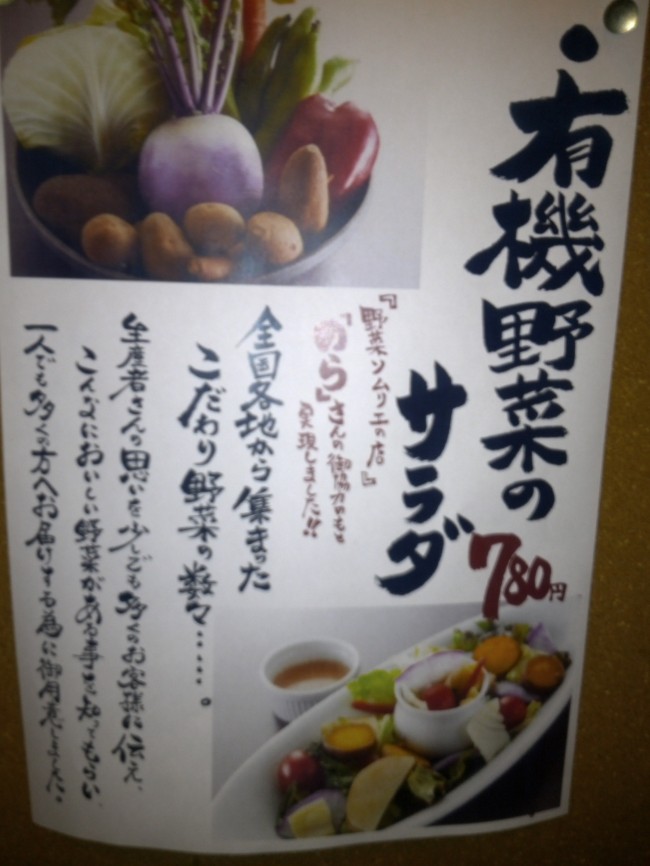 ・有機野菜の
サラダ
780円
『野菜ソムリエの店』
『めら』さんの御協力のもと
実現しました!!
全国各地から集まった
こだわり野菜の数々……。
生産者さんの思いを少しでも多くのお客様に伝え、
こんなにおいしい野菜がある事を知ってもらい、
一人でも多くの方へお届けする為に御用意しました。